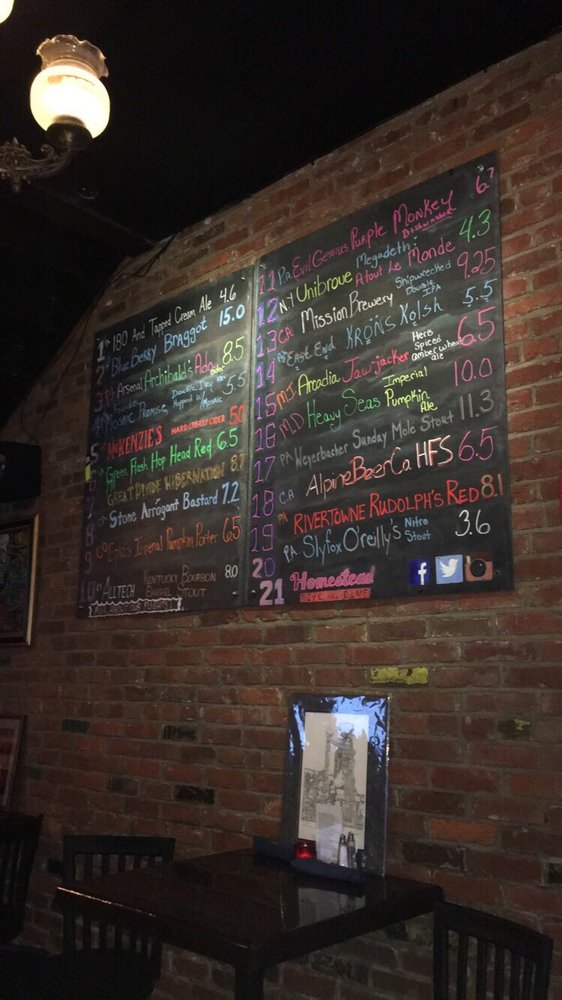 1 190 And Tapped Cream Ale 4.6
Blue Berry Braggot 15.0
Arsenal Archibald's Ado 8.5
Mosaic Promise 5.5
5 McKENZIE'S HARD CHERRY CIDER 5.0
6 Green Flash Hop Head Red 6.5
7 GREAT DIVIDE HIBERNATION 8.7
8 Stone Arrogant Bastard 7.2
9 CO Epic's Imperial Pumpkin Porter 6.5
10 ALLTECH KENTUCKY BOURBON BARREL STOUT 8.0
11 PA Evil Genius Purple Monkey Dishwasher 6.7
12 NY Unibroue Megadeth: A tout Le Monde 4.3
13 CA Mission Brewery Shipwrecked Double IPA 9.25
14 PA East End KRONS Kolsh 5.5
15 MI Arcadia Jaw-jacker Herb Spiced amber wheat ale 6.5
16 MD Heavy Seas Imperial Pumpkin Ale 10.0
17 PA Weyerbacher Sunday Mole Stout 11.3
18 CA Alpine Beer Co. HFS 6.5
19 PA RIVERTOWNE RUDOLPH'S RED 8.1
20 PA Slyfox O'reilly's Nitro Stout 3.6
21 Homestead